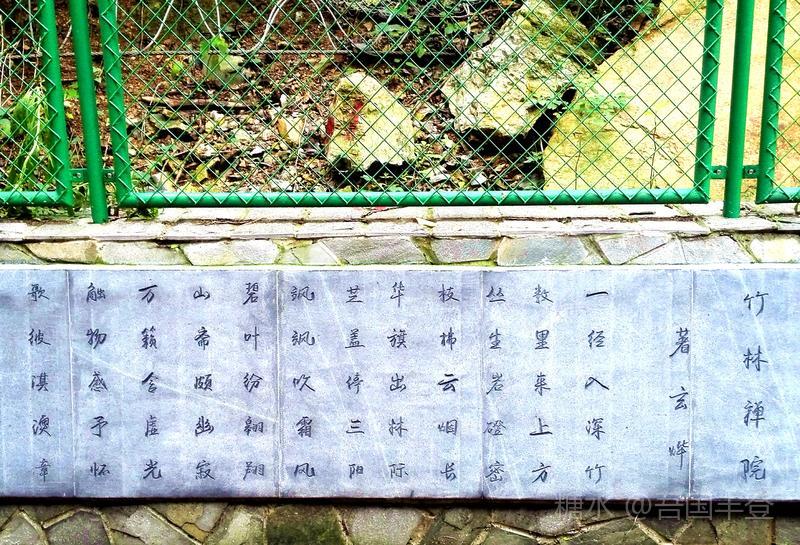 竹林禪院
著玄烨
一径入深竹
数里来上方
丛生岩磴密
枝拂云烟长
华旗出林际
芝盖停三阳
飒飒吹霜风
碧叶纷翱翔
山斋颇幽寂
万籁含虚光
触物感予怀
歌彼淇澳章
糖水 @吾国丰登